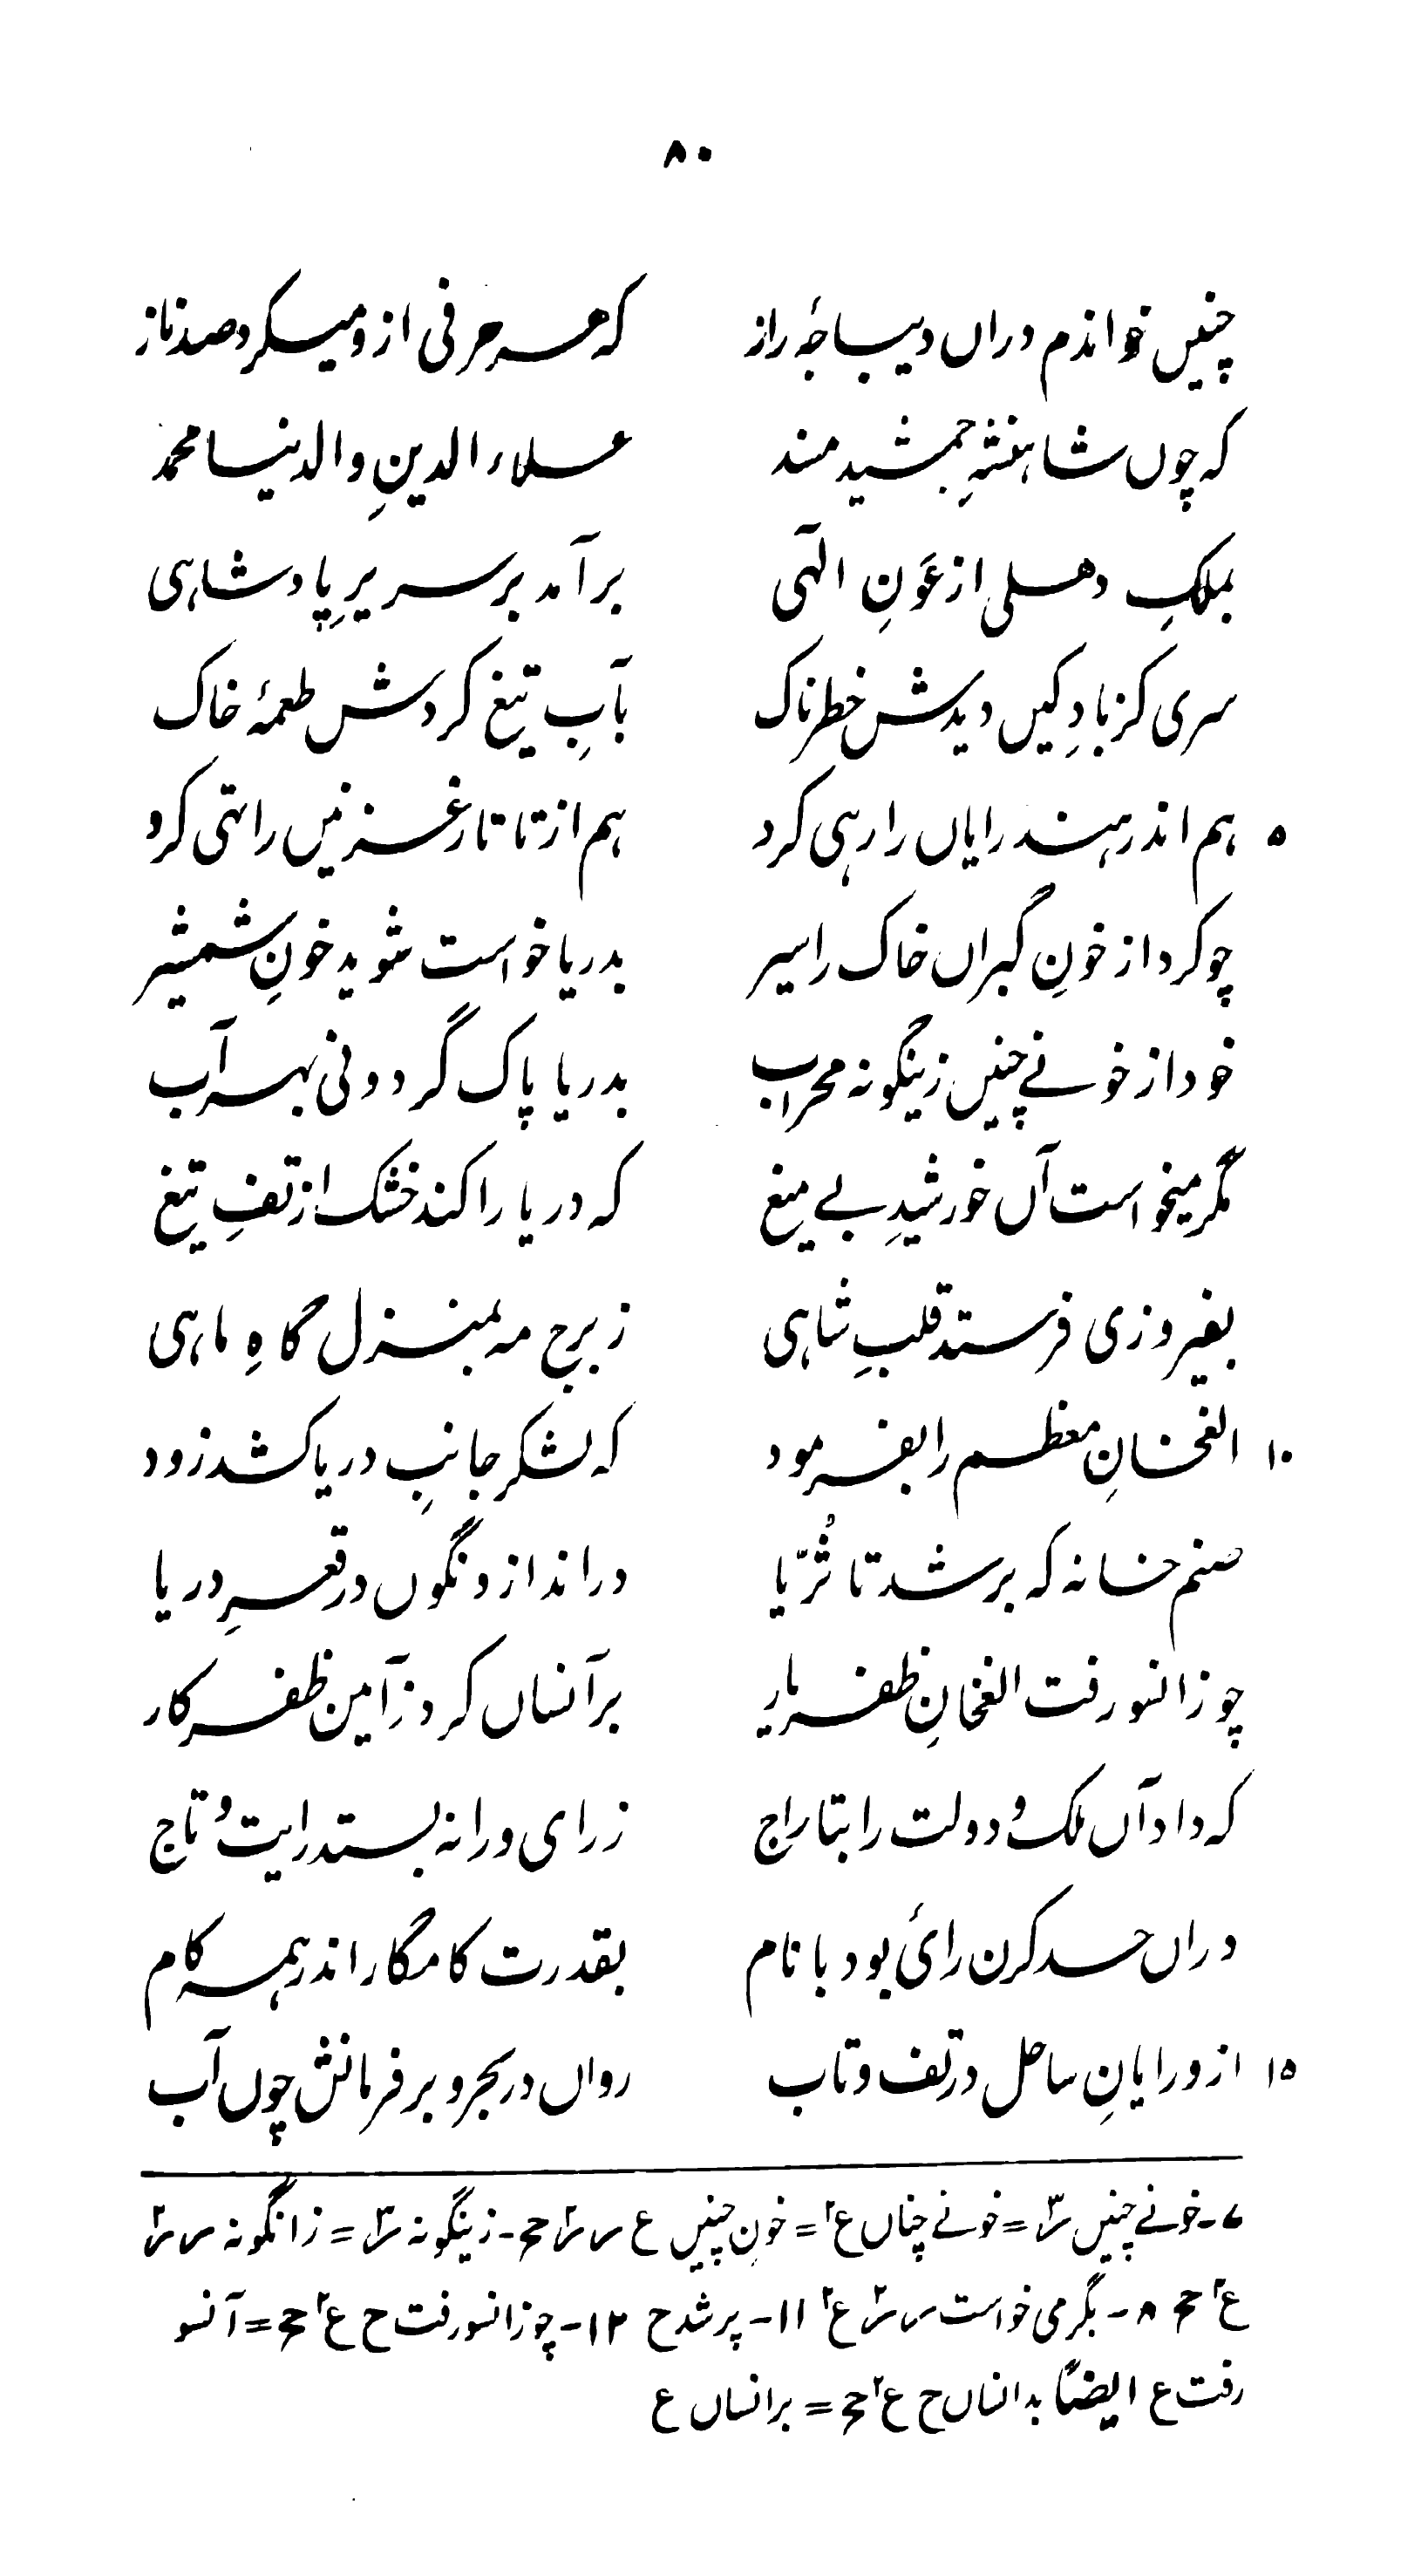 ۸۰
چنیں خواندم دراں دیباجۂ راز که هر حرفی ازو میکرد صد ناز
که چوں شاهنشهِ جمشید مسند علاء الدینِ والدنیا محمد
بملکِ دهلی از عَونِ الٓهی برآمد بر سریرِ پادشاہی
سری کز بادِ کیں دیدش خطرناک بآبِ تیغ کردش طعمۂ خاک
۵ ہم اندر ہند رایاں را رہی کرد ہم از تاتار غزنیں را تہی کرد
چو کرد از خونِ گبراں خاک را سیر بدریا خواست شوید خونِ شمشیر
خود از خونے چنیں زینگونه محراب بدریا پاک گردد نی بہر آب
مگر میخواست آں خورشیدِ بے میغ که دریا را کند خشک از تفِ تیغ
بفیروزی فرستد قلبِ شاہی ز برجِ مه بمنزل گاهِ ماہی
۱۰ الغخانِ معظم را بفرمود که لشکر جانبِ دریا کشد زود
صنم خانه که بر شد تا ثُرَیّا در اندازد نگوں در قعرِ دریا
چو زانسو رفت الغخانِ ظفریار برآنساں کرد زآیین ظفر کار
که داد آں ملک و دولت را بتاراج ز رای و رانه بستد رایت و تاج
دراں حد کرن رائی بود با نام بقدرت کامگار اندر ہمه کام
۱۵ ازو رایانِ ساحل در تف و تاب رواں در بحر و بر فرمانش چوں آب
۷ـ خونے چنیں = خونے چناں ع۲ = خونِ چنیں ع ـ زینگونه = زانگونه
ع۲ ۸ـ بگر می خواست ع۲ ۱۱ـ پر شد ح ۱۲ـ چو زانسو رفت ح ع۲ = آنسو
رفت ع ایضًا بدانساں ح ع۲ = برانساں ع